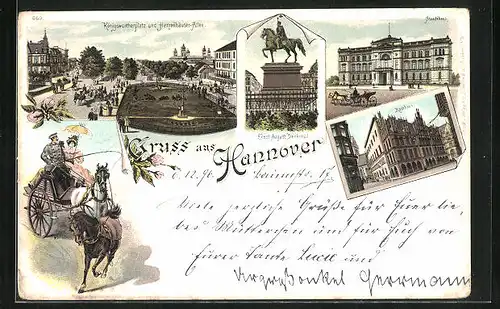 Königswortherplatz und Herrenhäuser-Allee
Ernst August Denkmal
Ständehaus
Rathaus
Gruss aus
Hannover
d. 12. 96.
Viele herzliche Grüße für Euer lie-
bes Mütterchen und für Euch von
Eurer Tante Lucie und